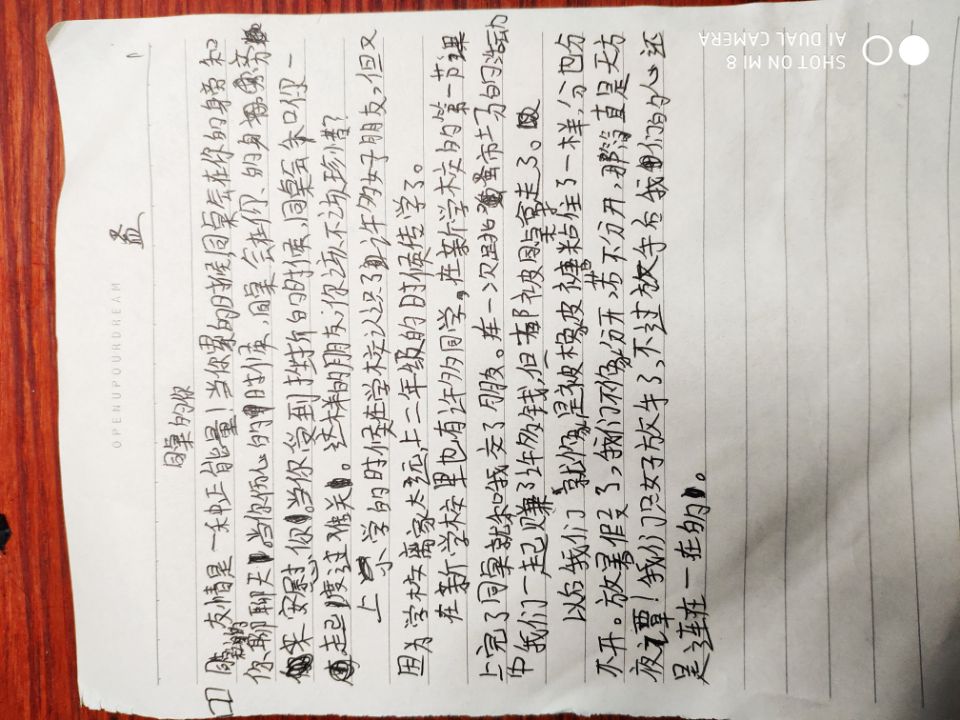 OPENUPOURDREAM
孟
同桌的你
同桌的友情是一种正能量!当你需的时候,同桌会在你的身旁和
你聊聊天。当你伤心的时候,同桌会在你、的身旁
来安慰你。当你受到挫折的时候,同桌会和你一
起度过难关。这样的朋友,你该不该珍惜?
上小学的时候在学校认识了许多好朋友,但又
因为学校离家太远,上二年级的时候转学了。
在新学校里也有许多同学。在新学校的第一节课
上完了同桌就和我交了朋友。在一次跳蚤市场的活动
中我们一起赚了许多钱,但都被同桌拿走了。
以后我们就像是被橡皮糖粘住了一样,分也分
不开。放暑假了,我们不像分开,若不分开,那简直是天方
夜谭!我们只好放手了,不过放手后我们的心还
是连在一在的。
SHOT ON MI 8
AI DUAL CAMERA